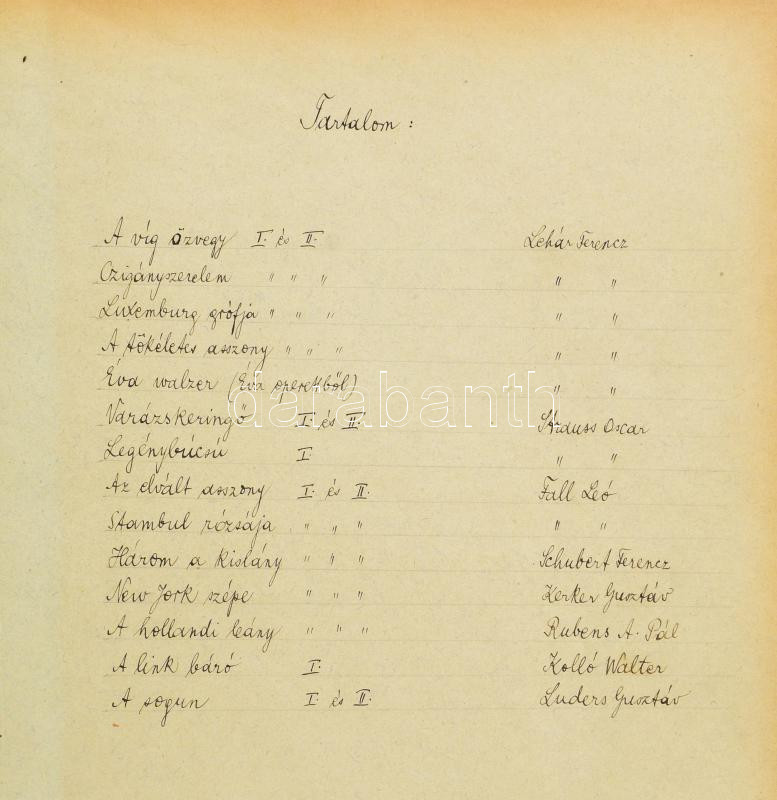 Tartalom :
A víg özvegy I. és II. Lehár Ferencz
Czigányszerelem " " " " "
Luxemburg grófja " " " " "
A tökéletes asszony " " " " "
Éva walzer (Éva operettből) " "
Varázskeringő I. és II. Strauss Oscar
Legénybúcsú I. " "
Az elvált asszony I. és II. Fall Leó
Stambul rózsája " " " " "
Három a kislány " " " Schubert Ferencz
New Jork szépe " " " Kerker Gusztáv
A hollandi leány " " " Rubens A. Pál
A link báró I. Kolló Walter
A sogun I. és II. Luders Gusztáv
darabanth